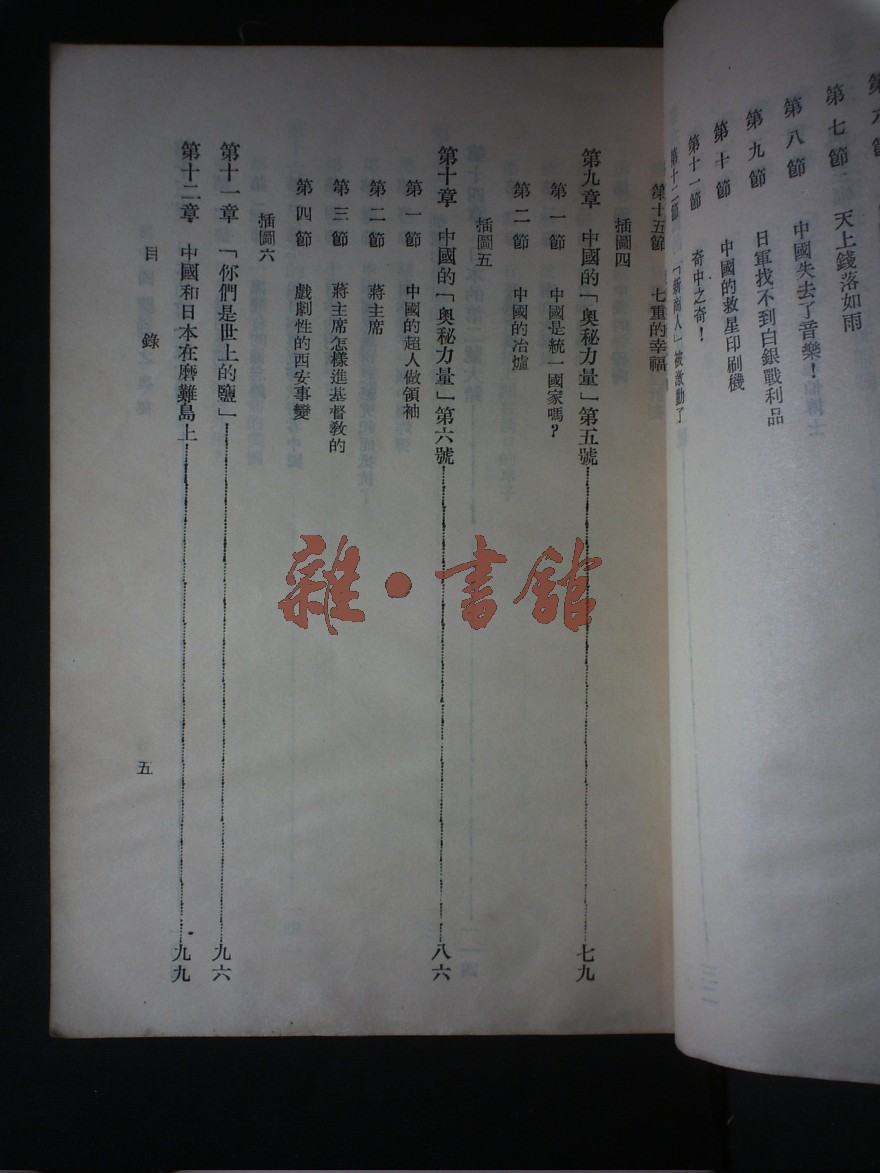 第七節 天上錢落如雨
第八節 中國失去了音樂！
第九節 日軍找不到白銀戰利品
第十節 中國的救星印刷機
第十一節 奇中之奇！
第十二節 「新商人」被激動了
第十五節 七重的幸福
插圖四
第九章 中國的「奧秘力量」第五號 七九
第一節 中國是統一國家嗎？
第二節 中國的冶爐
插圖五
第十章 中國的「奧秘力量」第六號 八六
第一節 中國的超人做領袖
第二節 蔣主席
第三節 蔣主席怎樣進基督教的
第四節 戲劇性的西安事變
插圖六
第十一章 「你們是世上的鹽」 九六
第十二章 中國和日本在磨難島上 九九
目錄
五
雜·書館